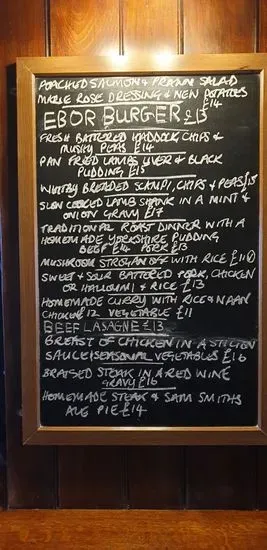 POACHED SALMON & PRAWN SALAD
MARIE ROSE DRESSING & NEW POTATOES
£14
EBOR BURGER £13
FRESH BATTERED HADDOCK, CHIPS &
MUSHY PEAS £14
PAN FRIED LAMBS LIVER & BLACK
PUDDING £15
WHITBY BREADED SCAMPI, CHIPS & PEAS £13
SLOW COOKED LAMB SHANK IN A MINT &
ONION GRAVY £17
TRADITIONAL ROAST DINNER WITH A
HOMEMADE YORKSHIRE PUDDING
BEEF £14 PORK £13
MUSHROOM STROGANOFF WITH RICE £11
SWEET & SOUR BATTERED PORK, CHICKEN
OR HALLOUMI & RICE £13
HOMEMADE CURRY WITH RICE & NAAN
CHICKEN £12 VEGETABLE £11
BEEF LASAGNE £13
BREAST OF CHICKEN IN A STILTON
SAUCE/SEASONAL VEGETABLES £16
BRAISED STEAK IN A RED WINE
GRAVY £16
HOMEMADE STEAK & SAM SMITHS
ALE PIE £14